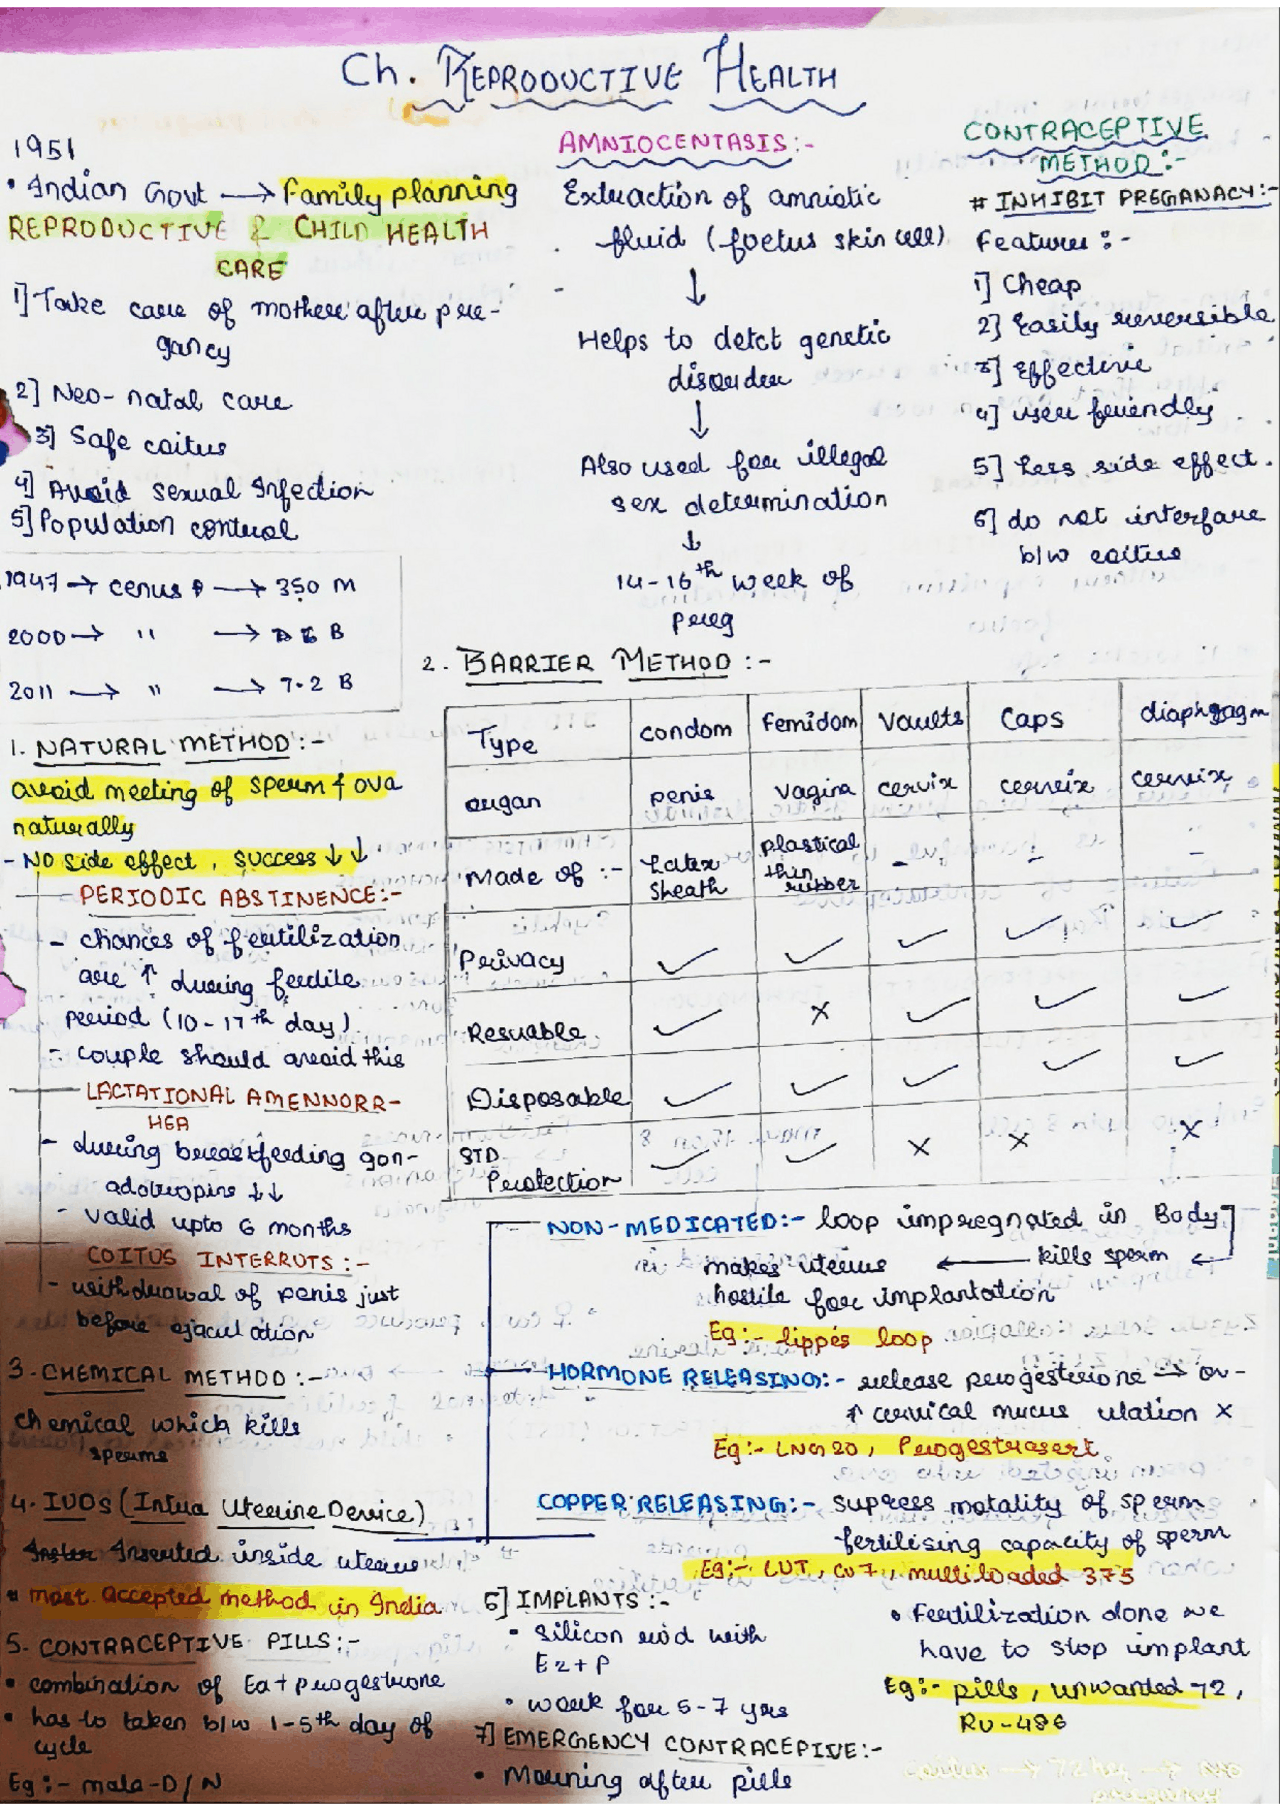 Ch. REPRODUCTIVE HEALTH
1951
• Indian Govt → family planning
REPRODUCTIVE & CHILD HEALTH
CARE
1] Take care of mother after pre-
gancy
2] Neo-natal care
3] Safe coitus
4] Avoid sexual Infection
5] Population control
1947 → cenus → 350 M
2000 → " → B
2011 → " → 7.2 B
AMNIOCENTASIS :-
Extraction of amniotic
fluid (foetus skin cell)
↓
Helps to detct genetic
disorder
↓
Also used for illegal
sex determination
↓
14-16th week of
preg
CONTRACEPTIVE
METHOD :-
# INHIBIT PREGANACY :-
Features :-
1] Cheap
2] Easily reversible
3] Effective
4] user friendly
5] Less side effect.
6] do not interfare
b/w coitus
1. NATURAL METHOD :-
avoid meeting of sperm & ova
naturally
- No side effect, success ↓↓
PERIODIC ABSTINENCE :-
- chances of fertilization
are ↑ during fertile
period (10-17th day)
- couple should avoid this
LACTATIONAL AMENNORR-
HEA
- during breastfeeding gon-
adotropins ↓↓
- valid upto 6 months
COITUS INTERRUTS :-
- withdrawal of penis just
before ejaculation
2. BARRIER METHOD :-
Type condom femidom Vaults Caps diaphragm
organ penis vagina cervix cervix cervix
Made of :- Latex sheath plastical thin rubber - - -
Privacy ✓ ✓ ✓ ✓ ✓
Resuable ✓ × ✓ ✓ ✓
Disposable ✓ ✓ ✓ ✓ ✓
STD Protection ✓ ✓ × × ×
3. CHEMICAL METHOD :-
chemical which kills
sperms
4. IUDs (Intra Uterine Device)
Inserted inside uterus
• most accepted method in India
NON-MEDICATED :- loop impregnated in Body
makes uterus ← kills sperm ←
hostile for implantation
Eg :- lippes loop
HORMONE RELEASING :- release progesterone → ov-
↑ cervical mucus ulation ×
Eg :- LNG 20, Progestrasert
COPPER RELEASING :- supress motality of sperm
fertilising capacity of sperm
Eg :- LUT, Cu7, multiloaded 375
5. CONTRACEPTIVE PILLS :-
• combination of + progestrone
• has to taken b/w 1-5th day of
cycle
Eg :- mala-D/N
6] IMPLANTS :-
• silicon rod with
E2+P
• work for 5-7 yrs
7] EMERGENCY CONTRACEPIVE :-
• Mourning after pills
• Fertilization done we
have to stop implant
Eg :- pills, unwanted 72,
RU-486